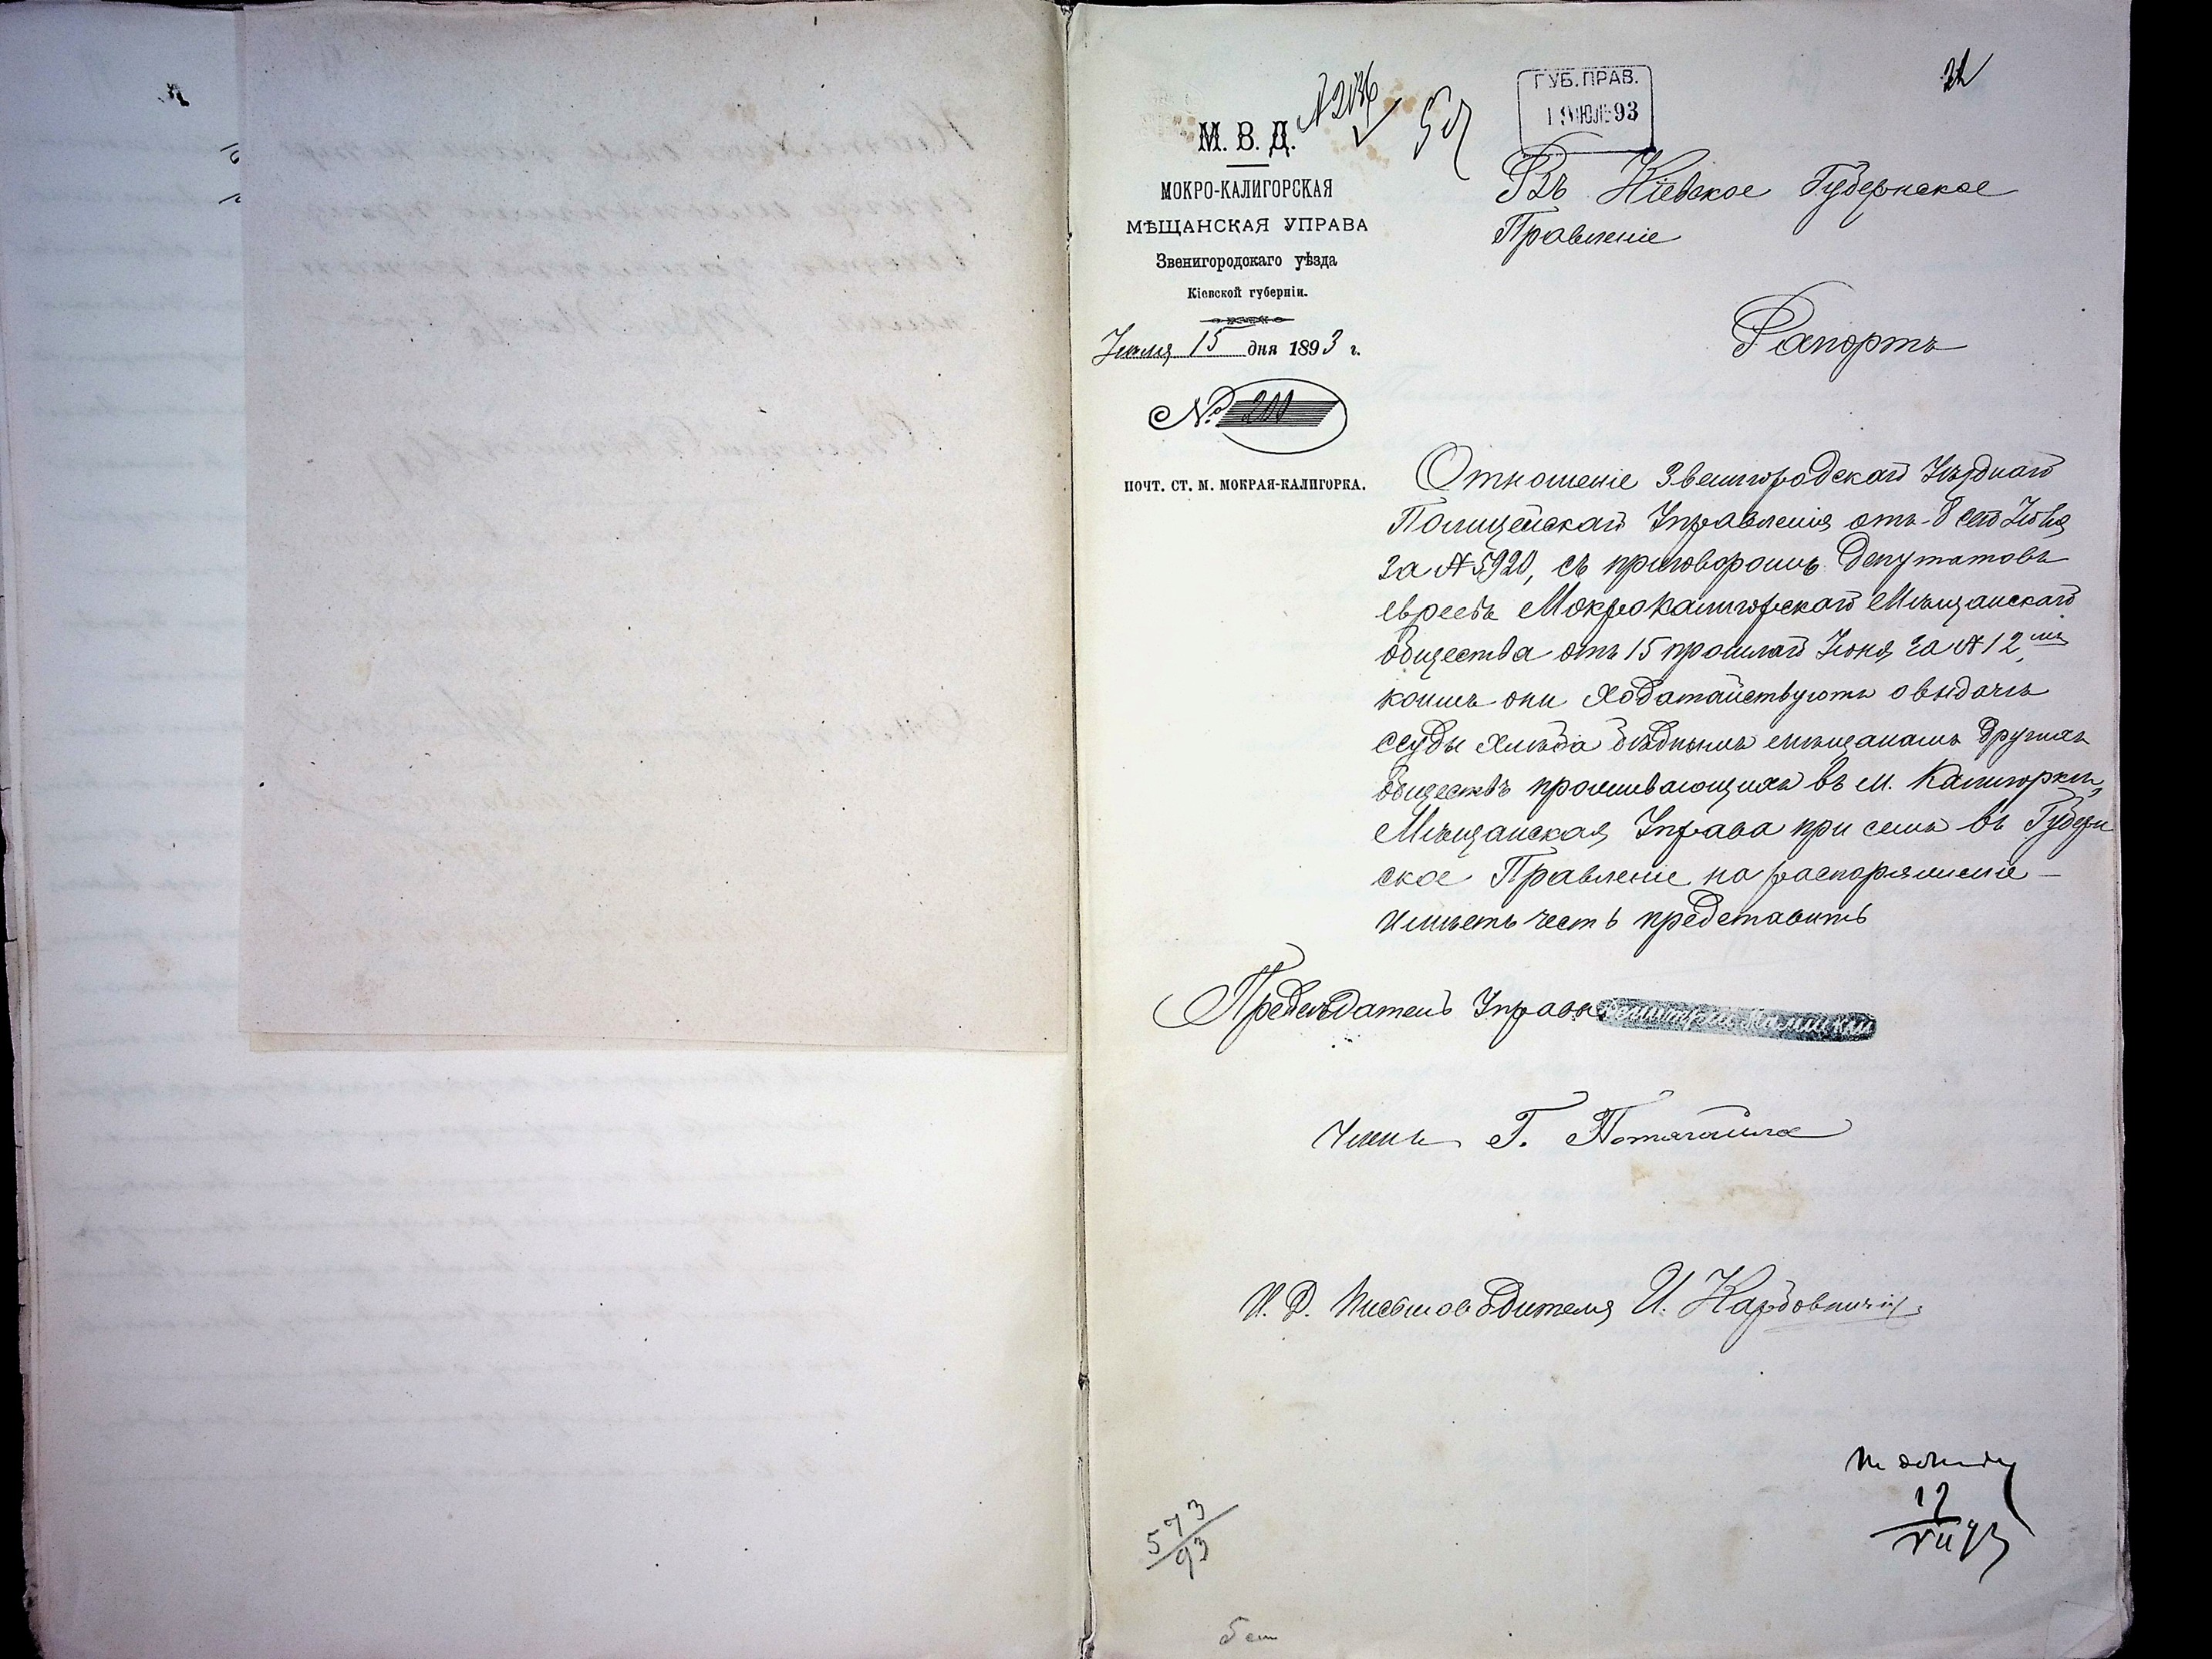 М. В. Д.
МОКРО-КАЛИГОРСКАЯ
МѢЩАНСКАЯ УПРАВА
Звенигородскаго уѣзда
Кіевской губерніи.
Іюля 15 дня 1893 г.
№ 200
ПОЧТ. СТ. М. МОКРАЯ-КАЛИГОРКА.
ГУБ. ПРАВ.
19 ИЮЛ 93
Въ Кіевское Губернское
Правленіе
Рапортъ
Отношеніе Звенигородскаго Уѣзднаго
Полицейскаго Управленія отъ 8 сего Іюля
за № 5920, съ приговоромъ депутатовъ
евреевъ Мокрокалигорскаго Мѣщанскаго
общества отъ 15 прошлаго Іюня за № 12,
коимъ они ходатайствуютъ о выдачѣ
ссуды хлѣба бѣднымъ мѣщанамъ другихъ
обществъ проживающихъ въ м. Калигоркѣ,
Мѣщанская Управа при семъ въ Губерн
ское Правленіе на распоряженіе
имѣетъ честь представить
Предсѣдатель Управы
Членъ Г.
И. Д. Письмоводителя И.
573
93